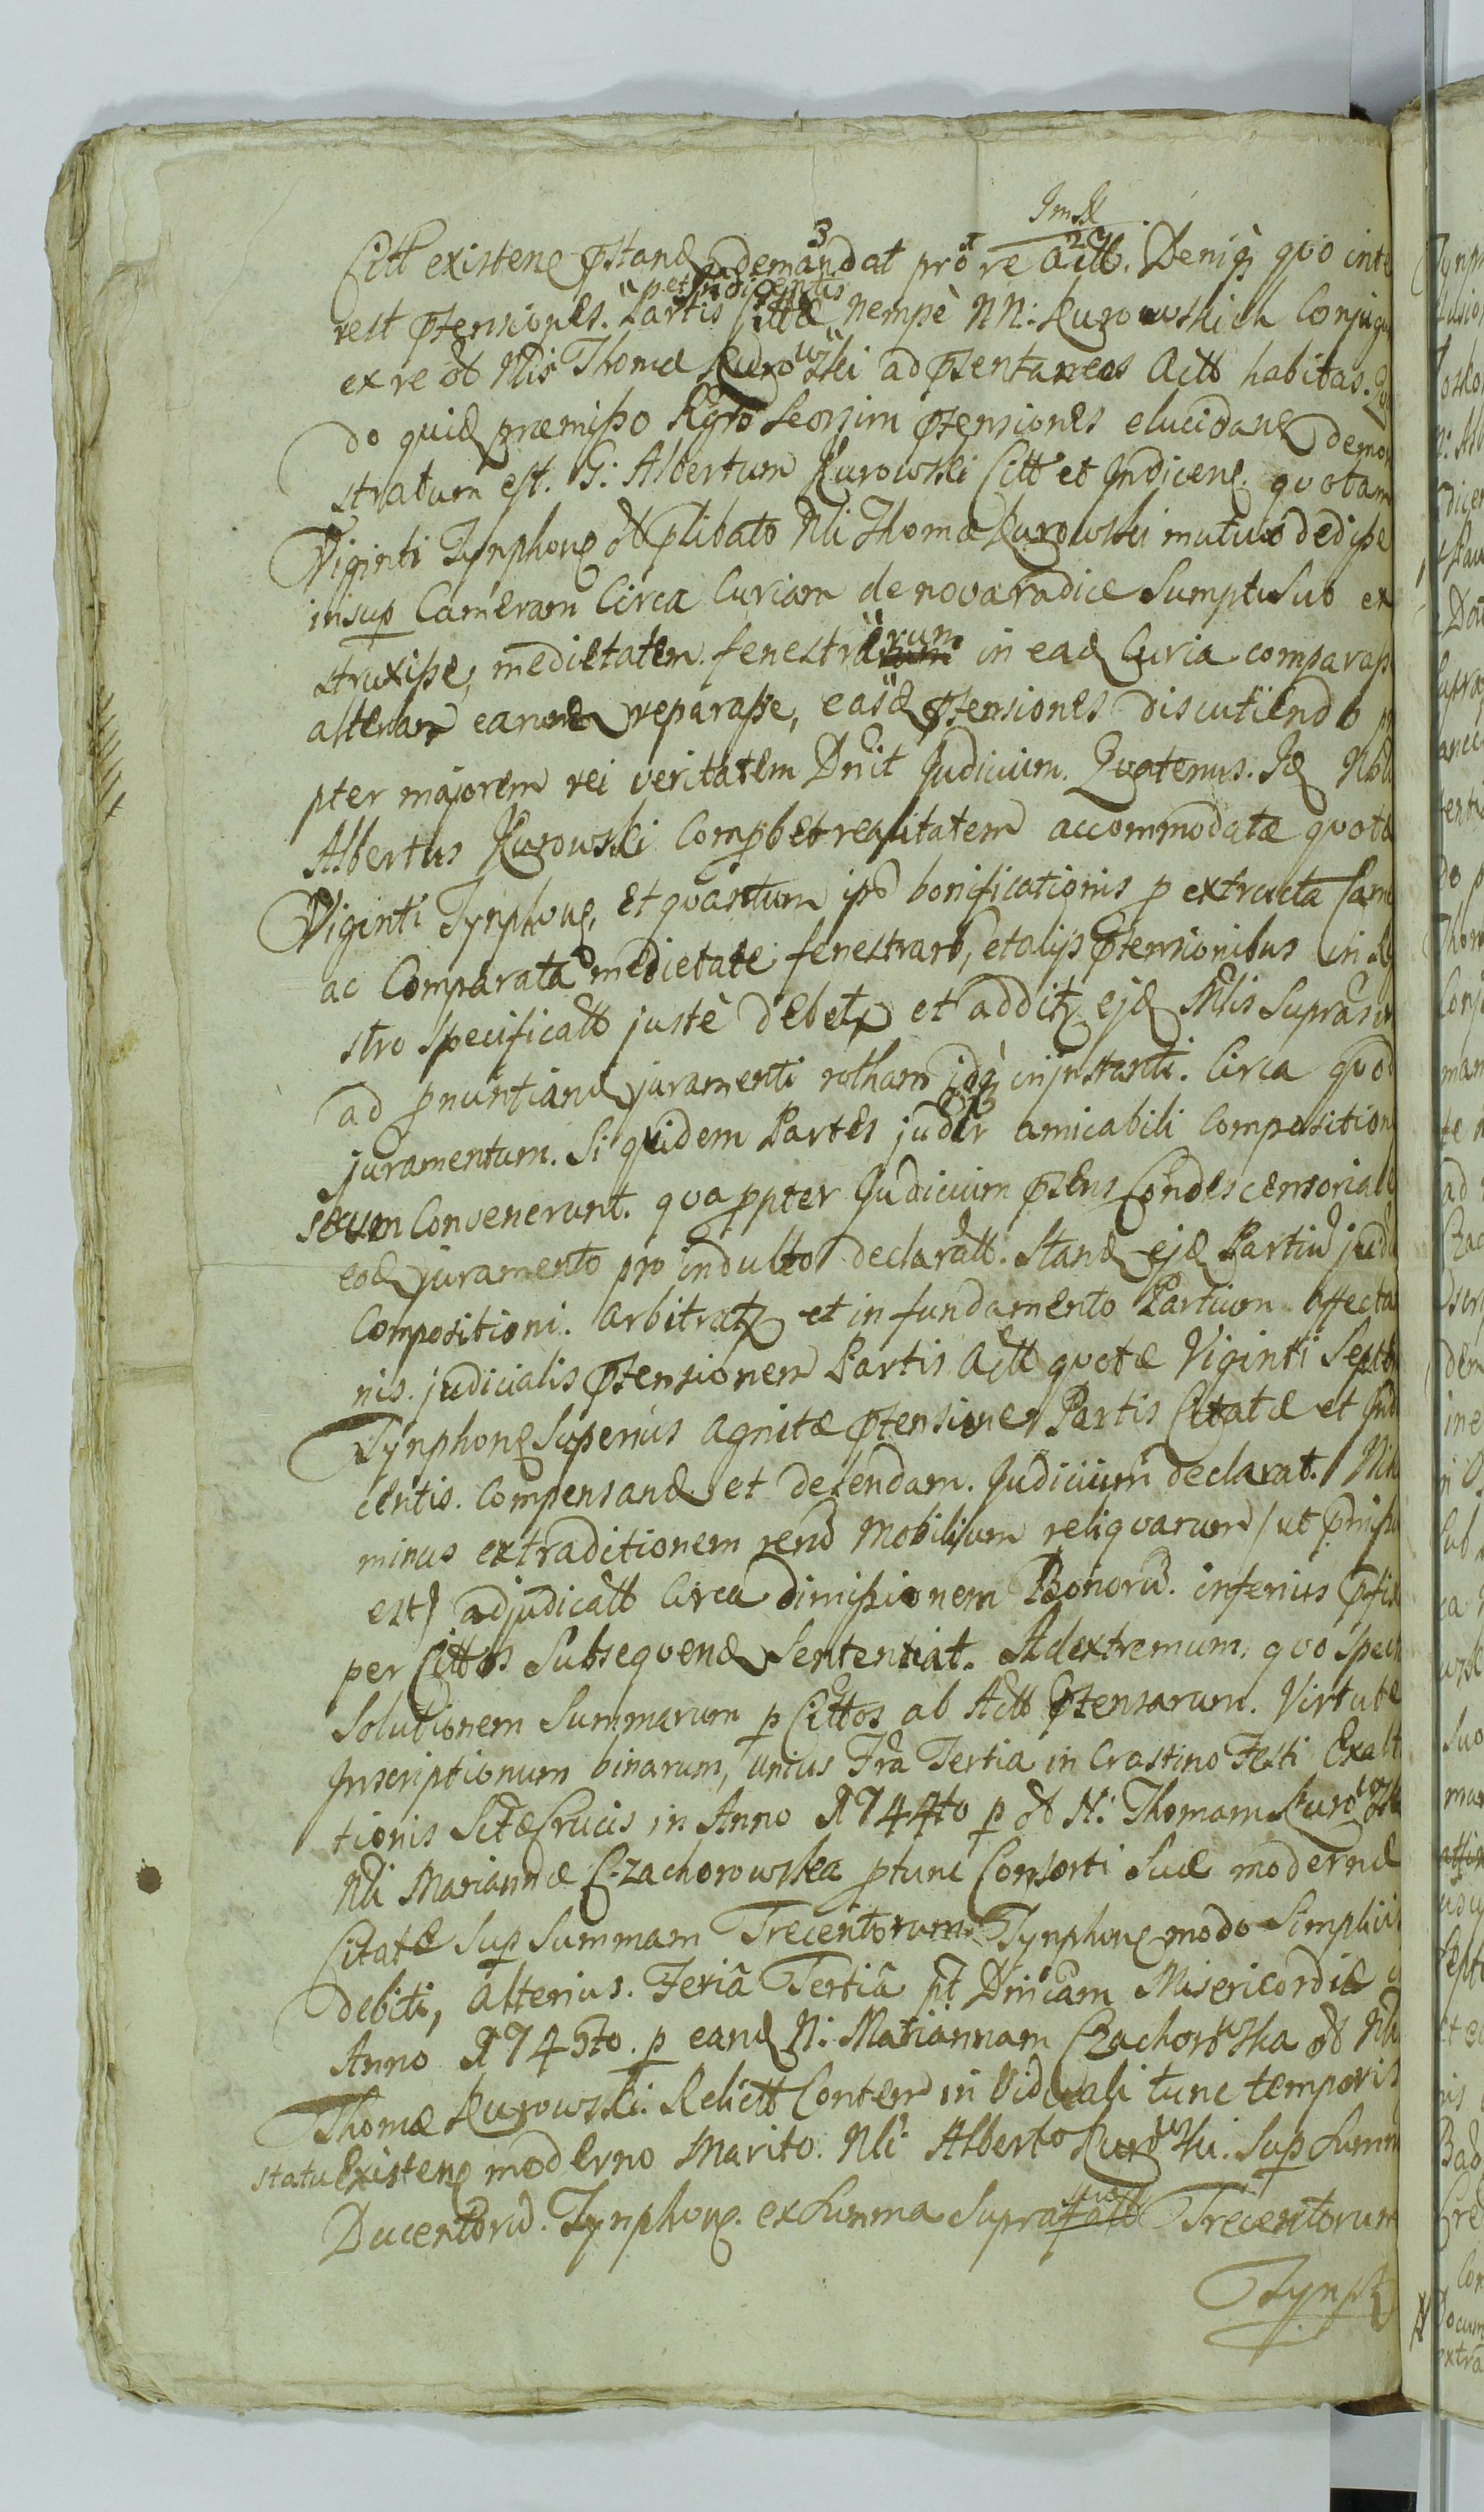 Jmsd
Citt existen pstand demandat pro re Actt. Deniq quo inte
rest ptensiones. Partis Cittæ et Indicentis nempè NN: Kurowskich Conjugu
ex re olt Nlis Thomæ Kurowski ad psentaneos Actt habitas.
do quid præmisso Rgro Seorsim ptensiones elucidan demon
stratum est. G: Albertum Kurowski Citt et Indicen. quotam
Viginti Tynphon olt plibato Nli Thomæ Kurowski mutuo dedisse
insup Cameram Circa Curiam de nova radice Sumptu Suo ex
struxisse, medietatem fenestrarum in ead Curia comparass
alteram earund reparasse, easd ptensiones discutiendo p
pter majorem rei veritatem Dnit Judicium. Quatenus. Id Nob
Albertus Kurowski Comprobet realitatem accommodatæ quotæ
Viginti Tynphon, et quantum ipsi bonificationis p extructa Cam
ac Comparata medietate fenestraro, et alijs ptensionibus in Re
stro specificatt justè debet, et addit ejd Nlis Supras
ad pnuntiand juramenti rotham idq in instanti. Circa quod
juramentum. Si quidem Partes judlr amicabili Composition
secum Convenerunt. qua ppter Judicium psens Condescensoriale
eod juramento pro indulto declaratt. Stand ejd Partiu judi
Compositioni. arbitratt et in fundamento Partium affecta
nis. judicialis ptensionem Partis Actt quotæ Viginti Septe
Tynphon Superius agnitæ ptensiones Partis Citatæ et Indi
centis. Compensand et delendam. Judicium declarat. Nih
minus extraditionem reru Mobilium reliquarum / ut pmiss
est) adjudicatt Circa dimissionem Bonoru. inferius
per Cittos Subsequend Sententiat. Ad extremum, quo spect
Solutionem Summarum p Cittos ab Actt ptensarum. Virtute
Inscriptionum binarum, unius Fra Tertia in Crastino Festi Exalt
tionis Sctæ Crucis in Anno 1744to p olt N: Thomam Kurowski
Nli Mariannæ Czachorowska ptunc Consorti Suæ modernæ
Citatæ Sup Summam Trecentorum Tynphon modo Simplicis
debiti, alterius. Feriâ Tertiâ pt Dnicam Misericordiæ
Anno 1745to. p eand N: Mariannam Czachorowska olt Nli
Thomæ Kurowski. Relictt Contem in Viduali tunc temporis
statu Existen moderno Marito. Nli Alberto Kurowski. Sup Summ
Ducentoru. Tynphon. ex Summa Supra Trecentorum
Tynph